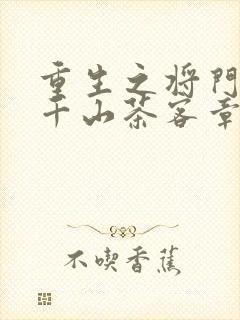 重生之将门
千山茶客章
不喫香蕉